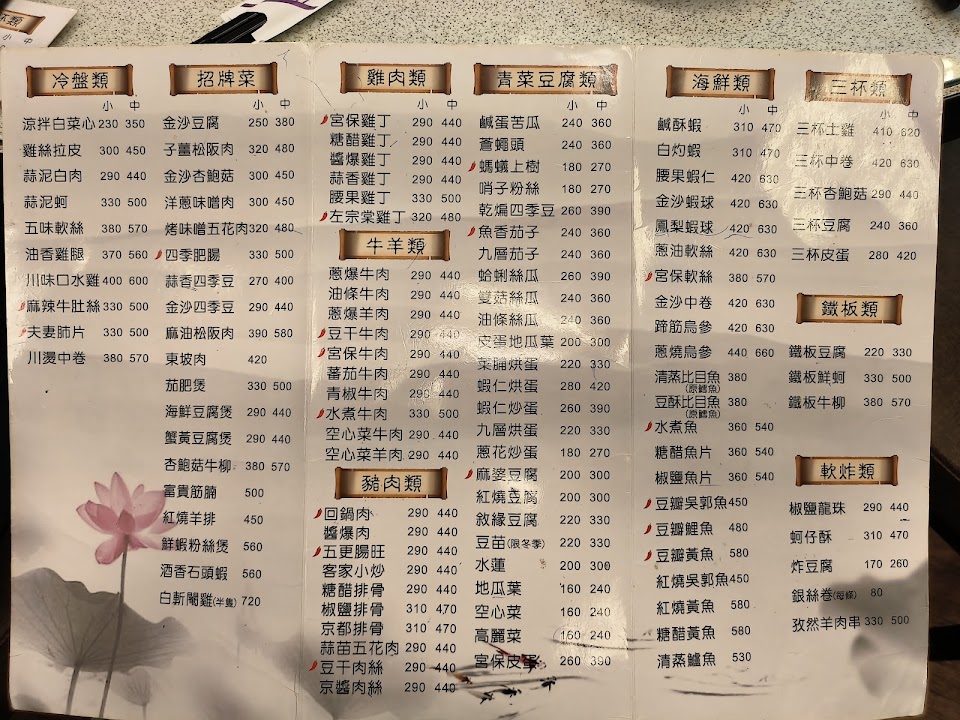 冷盤類
小 中
涼拌白菜心 230 350
雞絲拉皮 300 450
蒜泥白肉 290 440
蒜泥蚵 330 500
五味軟絲 380 570
油香雞腿 370 560
川味口水雞 400 600
麻辣牛肚絲 330 500
夫妻肺片 330 500
川燙中卷 380 570
招牌菜
小 中
金沙豆腐 250 380
子薑松阪肉 320 480
金沙杏鮑菇 300 450
洋蔥味噌肉 300 450
烤味噌五花肉 320 480
四季肥腸 330 500
蒜香四季豆 270 400
金沙四季豆 290 440
麻油松阪肉 390 580
東坡肉 420
茄肥煲 330 500
海鮮豆腐煲 290 440
蟹黃豆腐煲 290 440
杏鮑菇牛柳 380 570
富貴筋腩 500
紅燒羊排 450
鮮蝦粉絲煲 560
酒香石頭蝦 560
白斬閹雞(半隻) 720
雞肉類
小 中
宮保雞丁 290 440
糖醋雞丁 290 440
醬爆雞丁 290 440
蒜香雞丁 290 440
腰果雞丁 330 500
左宗棠雞丁 320 480
牛羊類
蔥爆牛肉 290 440
油條牛肉 290 440
蔥爆羊肉 290 440
豆干牛肉 290 440
宮保牛肉 290 440
蕃茄牛肉 290 440
青椒牛肉 290 440
水煮牛肉 330 500
空心菜牛肉 290 440
空心菜羊肉 290 440
豬肉類
回鍋肉 290 440
醬爆肉 290 440
五更腸旺 290 440
客家小炒 290 440
糖醋排骨 310 440
椒鹽排骨 310 470
京都排骨 310 470
蒜苗五花肉 290 440
豆干肉絲 290 440
京醬肉絲 290 440
青菜豆腐類
小 中
鹹蛋苦瓜 240 360
蒼蠅頭 240 360
螞蟻上樹 180 270
哨子粉絲 180 270
乾煸四季豆 260 390
魚香茄子 240 360
九層茄子 240 360
蛤蜊絲瓜 260 390
雙菇絲瓜 240 360
油條絲瓜 240 360
皮蛋地瓜葉 200 300
菜脯烘蛋 220 330
蝦仁烘蛋 280 420
蝦仁炒蛋 260 390
九層烘蛋 220 330
蔥花炒蛋 180 270
麻婆豆腐 200 300
紅燒豆腐 200 300
敘緣豆腐 220 330
豆苗(限冬季) 220 330
水蓮 200 300
地瓜葉 160 240
空心菜 160 240
高麗菜 160 240
宮保皮蛋 260 390
海鮮類
小 中
鹹酥蝦 310 470
白灼蝦 310 470
腰果蝦仁 420 630
金沙蝦球 420 630
鳳梨蝦球 420 630
蔥油軟絲 420 630
宮保軟絲 380 570
金沙中卷 420 630
蹄筋烏參 420 630
蔥燒烏參 440 660
清蒸比目魚 380
(原鱈魚)
豆酥比目魚 380
(原鱈魚)
水煮魚 360 540
糖醋魚片 360 540
椒鹽魚片 360 540
豆瓣吳郭魚 450
豆瓣鯉魚 480
豆瓣黃魚 580
紅燒吳郭魚 450
紅燒黃魚 580
糖醋黃魚 580
清蒸鱸魚 530
三杯類
小 中
三杯土雞 410 620
三杯中卷 420 630
三杯杏鮑菇 290 440
三杯豆腐 240 360
三杯皮蛋 280 420
鐵板類
鐵板豆腐 220 330
鐵板鮮蚵 330 500
鐵板牛柳 380 570
軟炸類
椒鹽龍珠 290 440
蚵仔酥 310 470
炸豆腐 170 260
銀絲卷(每條) 80
孜然羊肉串 330 500